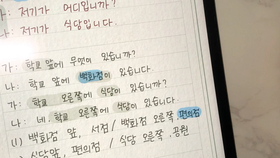 가: 저기가 어디입니까?
나: 저기가 식당입니다.
가: 학교 앞에 무엇이 있습니까?
나: 학교 앞에 백화점이 있습니다.
가: 학교 오른쪽에 식당이 있습니까?
나: 네, 학교 오른쪽에 식당이 있습니다.
(1) 백화점 앞, 서점 / 백화점 오른쪽, 편의점
식당 앞, 편의점 / 식당 오른쪽, 공원